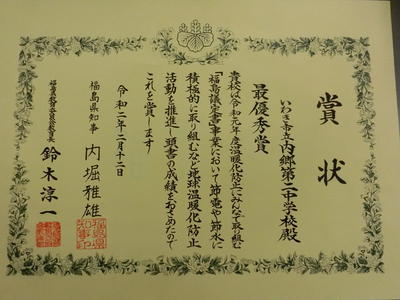 賞状
いわき市立内郷第二中学校殿
最優秀賞
貴校は令和元年度温暖化防止にみんなで取り組む
「福島議定書」事業において節電や節水に
積極的に取り組むなど地球温暖化防止
活動を推進し頭書の成績をおさめたので
これを賞します
令和二年二月十二日
福島県知事 内堀雅雄
福島県知事印
福島県教育委員会教育長 鈴木淳一